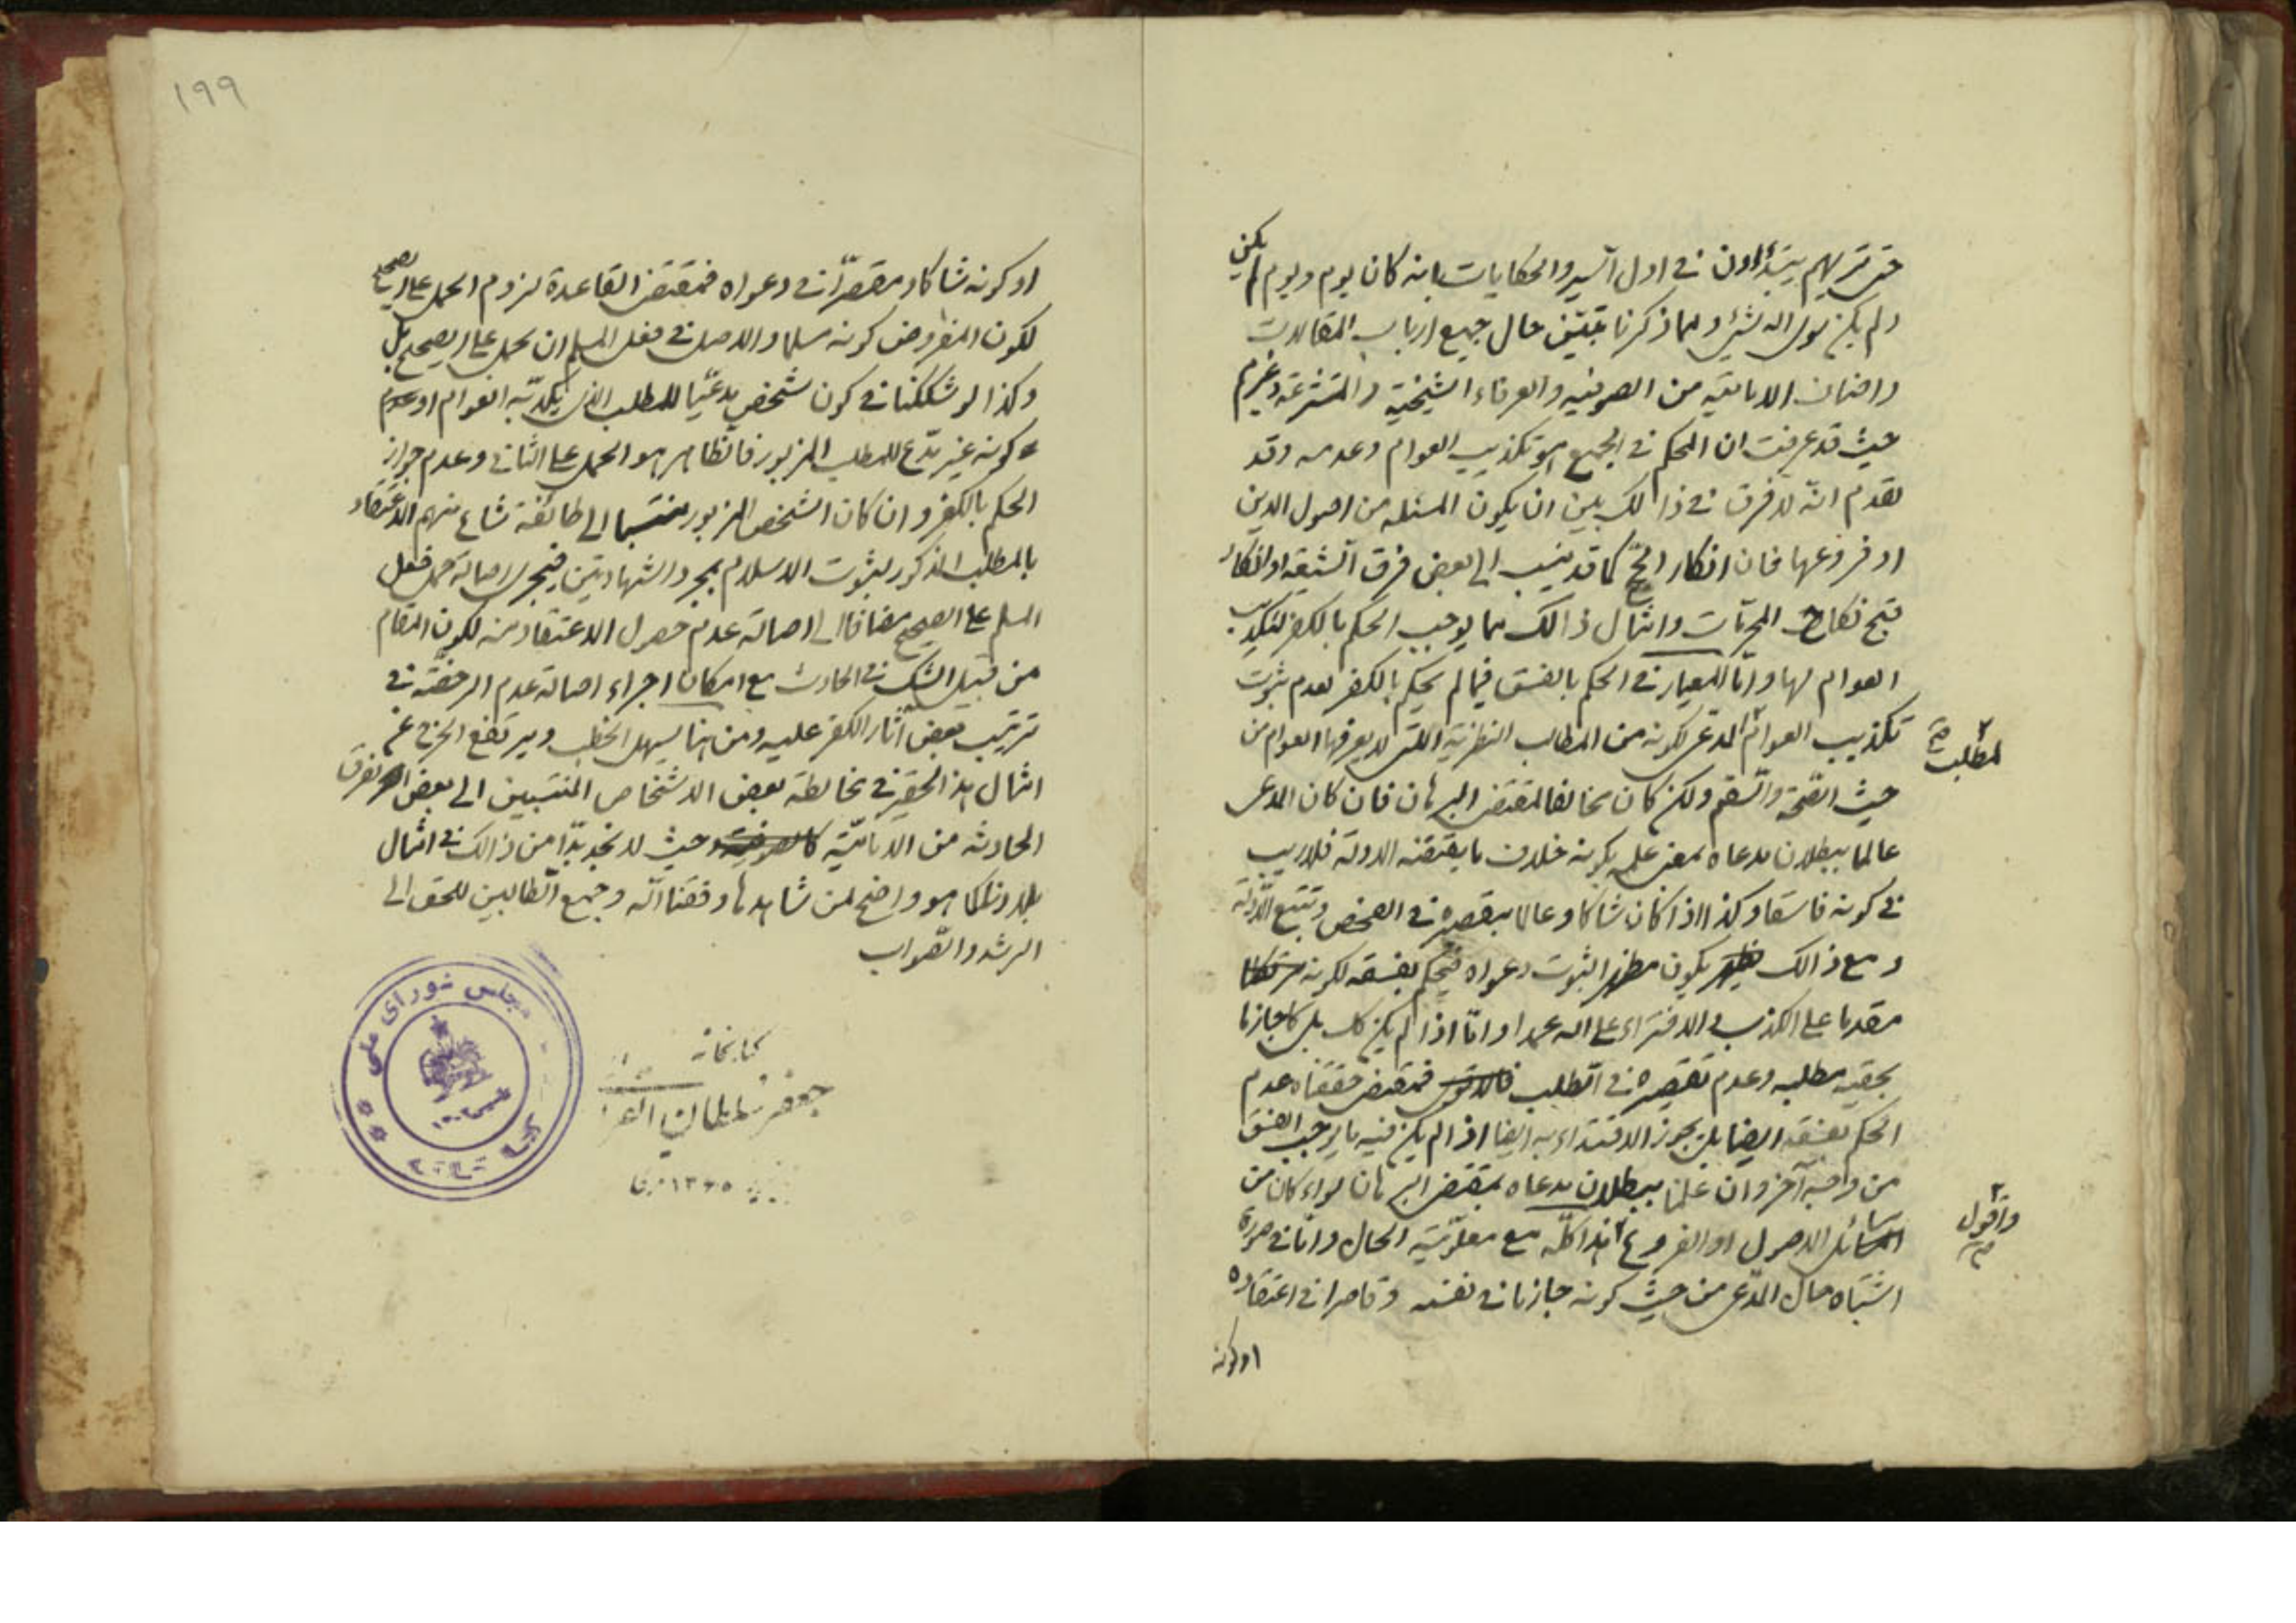 حتى تريهم يبتدؤن في اول السير والحكايات بانه كان يوم ويوم لم يكن
ولم يكن سوى الله شيء ومما ذكرنا تبين حال جميع ارباب المقالات
واصناف الامامية من الصوفية والعرفاء الشيخية والمتشرعة وغيرهم
حيث قد عرفت ان الحكم في الجميع هو تكذيب العوام وعدمه وقد
تقدم انه لا فرق في ذالك بين ان يكون المسئلة من اصول الدين
او فروعها فان انكار الحج كما قد ينسب الى بعض فرق الشيعة او انكار
قبح نكاح المحرمات وامثال ذالك مما يوجب الحكم بالكفر لتكذيب
العوام لها واما المعيار في الحكم بالفسق فيما لم يحكم بالكفر لعدم ثبوت
تكذيب العوام المدعى لكونه من المطالب النظرية اللتى لا يعرفها العوام من
لمطلب صح
حيث الصحة والسقم ولكن كان مخالفا لمقتضى البرهان فان كان المدعى
عالما ببطلان مدعاه بمعنى علمه بكونه خلاف ما يقتضيه الادلة فلا ريب
في كونه فاسقا وكذا اذا كان شاكا وعالما بتقصيره في الفحص وتتبع الادلة
ومع ذالك يكون مظهرا لثبوت دعواه فيحكم بفسقه لكونه
مقدما على الكذب والافتراء على الله عمدا واما اذا لم يكن كك بل كا جازما
بحقية مطلبه وعدم تقصيره في الطلب فمقتضى حققناه عدم
الحكم بفسقه ايضا بل يجوز الاقتداء به ايضا اذا لم يكن فيه ما يوجب الفسق
من وجه آخر وان علمنا ببطلان مدعاه بمقتضى البرهان سواء كان من
المسائل الاصول او الفروع هذا كله مع معلومية الحال واما في صورة
واقول صح
اشتباه حال المدعى من حيث كونه جازما في نفسه وقاصرا في اعتقاده
او كونه
١٩٩
او كونه شاكا ومقصرا في دعواه فمقتضى القاعدة لزوم الحمل على الصحيح
لكون المفروض كونه مسلما والاصل في فعل المسلم ان يحمل على الصحيح بل
وكذا لو شككنا في كون شخص مدعيا للمطلب الذى يكذبه العوام او
كونه غير مدع للمطلب المزبور فالظاهر هو الحمل على الثاني وعدم جواز
الحكم بالكفر وان كان الشخص المزبور منتسبا الى طائفة شاع منهم الاعتقاد
بالمطلب المذكور لثبوت الاسلام بمجرد الشهادتين فيجرى اصالة حمل فعل
المسلم على الصحيح مضافا الى اصالة عدم حصول الاعتقاد منه لكون المقام
من قبيل الشك في الحادث مع امكان اجراء اصالة عدم الرخصة في
ترتيب بعض آثار الكفر عليه ومن هنا يسهل الخطب ويرتفع الحرج عن
امثال هذا الحقير في مخالطة بعض الاشخاص المنتسبين الى بعض الفرق
الحادثة من الامامية حيث لا نجد بدا من ذالك في امثال
بلادنا كما هو واضح لمن شاهدها وفقنا الله وجميع الطالبين للحق الى
الرشد والصواب
كتابخانه
جعفر سلطان
١٣٦٥
مجلس شورای ملی